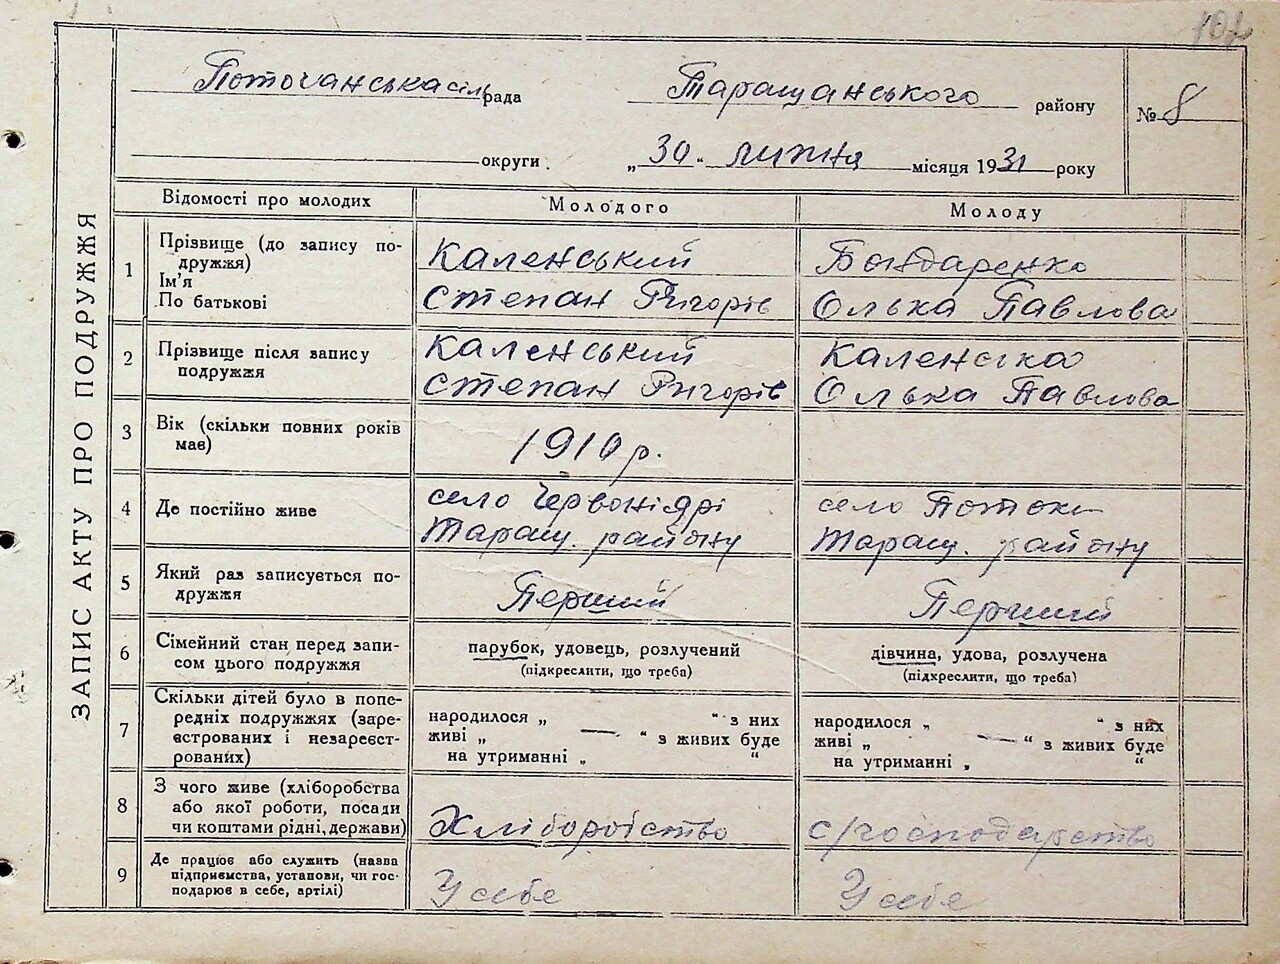 107
ЗАПИС АКТУ ПРО ПОДРУЖЖЯ
Поточанська сіль рада Таращанського району № 8
округи „ 30 “ липня місяця 1931 року
Відомості про молодих Молодого Молоду
1 Прізвище (до запису по-
дружжя)
Ім'я
По батькові
Каленський
Степан Ригорів
Бондаренко
Олька Павлова
2 Прізвище після запису
подружжя
Каленський
Степан Ригорів
Каленська
Олька Павлова
3 Вік (скільки повних років
має)
1910 р.
4 Де постійно живе
село Червоні Ярі
Таращ. району
село Потоки
Таращ. району
5 Який раз записується по-
дружжя
Перший
Перший
6 Сімейний стан перед запи-
сом цього подружжя
парубок, удовець, розлучений
(підкреслити, що треба)
дівчина, удова, розлучена
(підкреслити, що треба)
7 Скільки дітей було в попе-
редніх подружжях (заре-
єстрованих і незареєст-
рованих)
народилося „ — “ з них
живі „ “ з живих буде
на утриманні „ “
народилося „ — “ з них
живі „ “ з живих буде
на утриманні „ “
8 З чого живе (хліборобства
або якої роботи, посади
чи коштами рідні, держави)
Хліборобство
с/господарство
9 Де працює або служить (назва
підприємства, установи, чи гос-
подарює в себе, артілі)
У себе
У себе